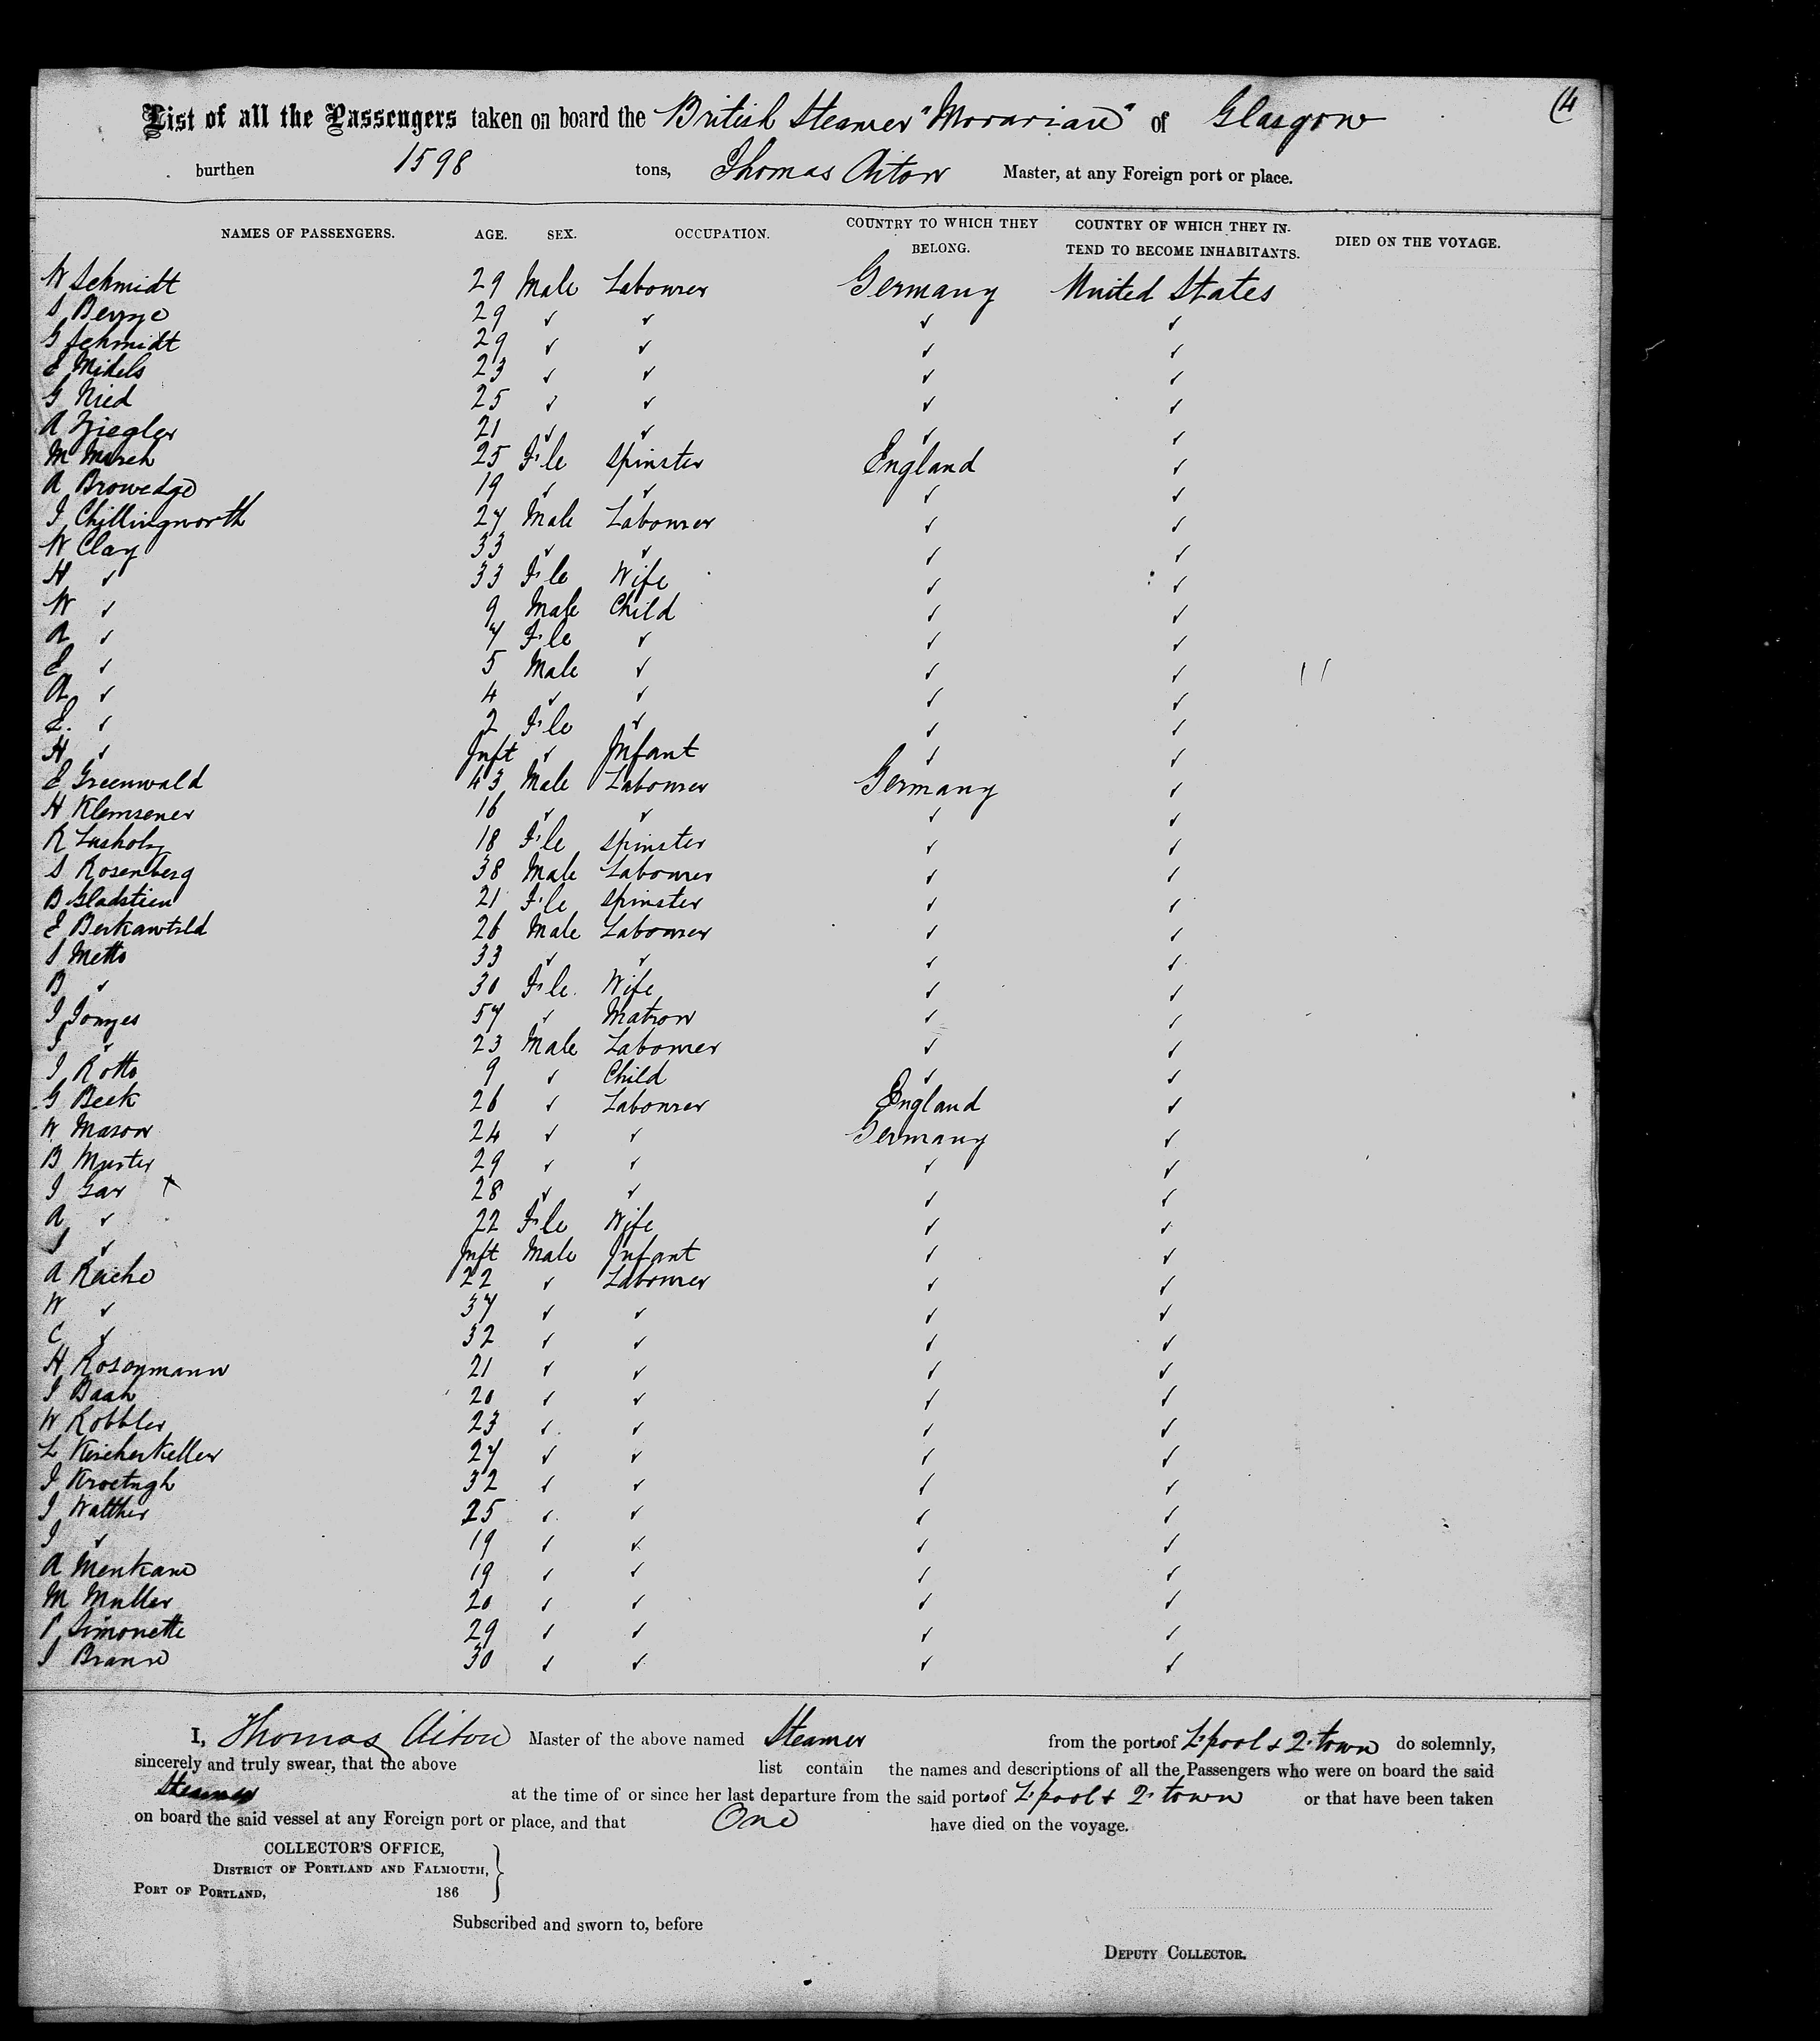 (4
List of all the Passengers taken on board the British Steamer "Moravian" of Glasgow
burthen 1598 tons, Thomas Aiton Master, at any Foreign port or place.
NAMES OF PASSENGERS. AGE. SEX. OCCUPATION. COUNTRY TO WHICH THEY BELONG. COUNTRY OF WHICH THEY INTEND TO BECOME INHABITANTS. DIED ON THE VOYAGE.
W Schmidt 29 Male Labourer Germany United States
S 29 ✓ ✓ ✓ ✓
G Schmidt 29 ✓ ✓ ✓ ✓
E Mikels 23 ✓ ✓ ✓ ✓
G Nied 25 ✓ ✓ ✓ ✓
A Ziegler 21 ✓ ✓ ✓ ✓
M March 25 F'le Spinster England ✓
A Browedge 19 ✓ ✓ ✓ ✓
I Chillingworth 27 Male Labourer ✓ ✓
W Clay 33 ✓ ✓ ✓ ✓
H ✓ 33 F'le Wife ✓ ✓
W ✓ 9 Male Child ✓ ✓
A ✓ 7 F'le ✓ ✓ ✓
E ✓ 5 Male ✓ ✓ ✓
A ✓ 4 ✓ ✓ ✓ ✓
E. ✓ 2 F'le ✓ ✓ ✓
H ✓ Inft ✓ Infant ✓ ✓
E Greenwald 43 Male Labourer Germany ✓
H Klemsener 16 ✓ ✓ ✓ ✓
R Lasholz 18 F'le Spinster ✓ ✓
S Rosenberg 38 Male Labourer ✓ ✓
B Gladstien 21 F'le Spinster ✓ ✓
E 26 Male Labourer ✓ ✓
S Metto 33 ✓ ✓ ✓ ✓
B ✓ 30 F'le. Wife ✓ ✓
I Jonges 57 ✓ Matron ✓ ✓
I ✓ 23 Male Labourer ✓ ✓
I Rotto 9 ✓ Child ✓ ✓
G Beek 26 ✓ Labourer England ✓
W Mason 24 ✓ ✓ Germany ✓
B Munter 29 ✓ ✓ ✓ ✓
I Gar + 28 ✓ ✓ ✓ ✓
A ✓ 22 F'le Wife ✓ ✓
I ✓ Inft Male Infant ✓ ✓
A Reiche 22 ✓ Labourer ✓ ✓
W ✓ 37 ✓ ✓ ✓ ✓
C ✓ 32 ✓ ✓ ✓ ✓
H Rosenmann 21 ✓ ✓ ✓ ✓
I Baah 20 ✓ ✓ ✓ ✓
W Robbler 23 ✓ ✓ ✓ ✓
L Kircherkeller 27 ✓ ✓ ✓ ✓
I Kroetngh 32 ✓ ✓ ✓ ✓
I Walther 25 ✓ ✓ ✓ ✓
I ✓ 19 ✓ ✓ ✓ ✓
A Menkane 19 ✓ ✓ ✓ ✓
M Muller 20 ✓ ✓ ✓ ✓
P Simonette 29 ✓ ✓ ✓ ✓
I Brann 30 ✓ ✓ ✓ ✓
I, Thomas Aiton Master of the above named Steamer from the ports of L'pool & L'town do solemnly,
sincerely and truly swear, that the above list contain the names and descriptions of all the Passengers who were on board the said
Steamer at the time of or since her last departure from the said ports of L'pool & L'town or that have been taken
on board the said vessel at any Foreign port or place, and that One have died on the voyage.
COLLECTOR'S OFFICE,
DISTRICT OF PORTLAND AND FALMOUTH,
PORT OF PORTLAND, 186
Subscribed and sworn to, before
DEPUTY COLLECTOR.